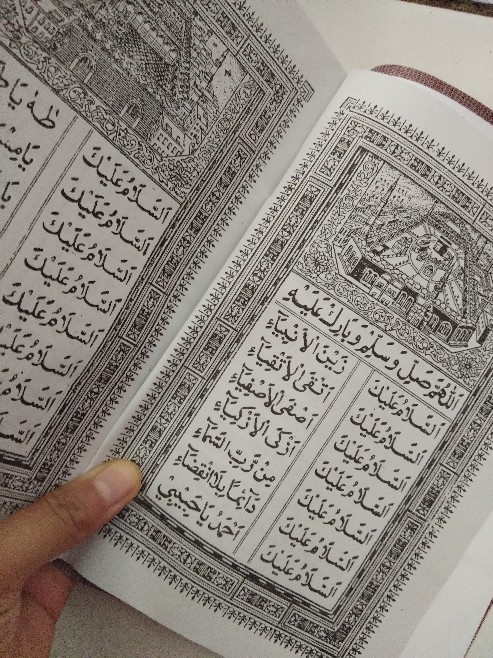 اَللّٰهُمَّ صَلِّ وَسَلِّمْ وَبَارِكْ عَلَيْهِ
اَلسَّلَامُ عَلَيْكَ زَيْنَ الْأَنْبِيَاءِ
اَلسَّلَامُ عَلَيْكَ اَتْقَى الْأَتْقِيَاءِ
اَلسَّلَامُ عَلَيْكَ اَصْفَى الْأَصْفِيَاءِ
اَلسَّلَامُ عَلَيْكَ اَزْكَى الْأَزْكِيَاءِ
اَلسَّلَامُ عَلَيْكَ مِنْ رَّبِّ السَّمَاءِ
اَلسَّلَامُ عَلَيْكَ دَآئِمًا بِلَا انْقِضَاءِ
اَلسَّلَامُ عَلَيْكَ اَحْمَدُ يَا حَبِيْبِيْ
اَلسَّلَامُ عَلَيْكَ طٰهٰ يَا
اَلسَّلَامُ عَلَيْكَ
اَلسَّلَامُ عَلَيْكَ
اَلسَّلَامُ عَلَيْكَ
اَلسَّلَامُ عَلَيْكَ
اَلسَّلَامُ عَلَيْكَ
اَلسَّلَامُ
اَلسَّلَامُ